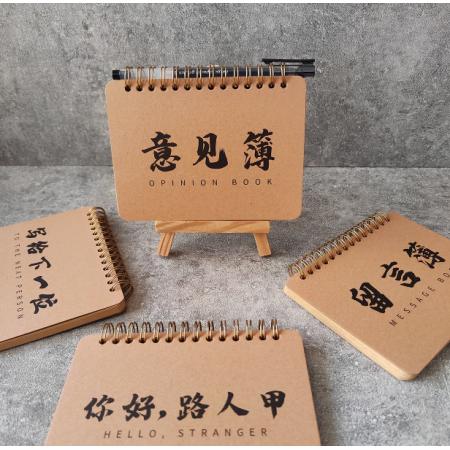 意见簿
OPINION BOOK
写给下一位
TO THE NEXT PERSON
留言簿
MESSAGE BO
你好,路人甲
HELLO, STRANGER